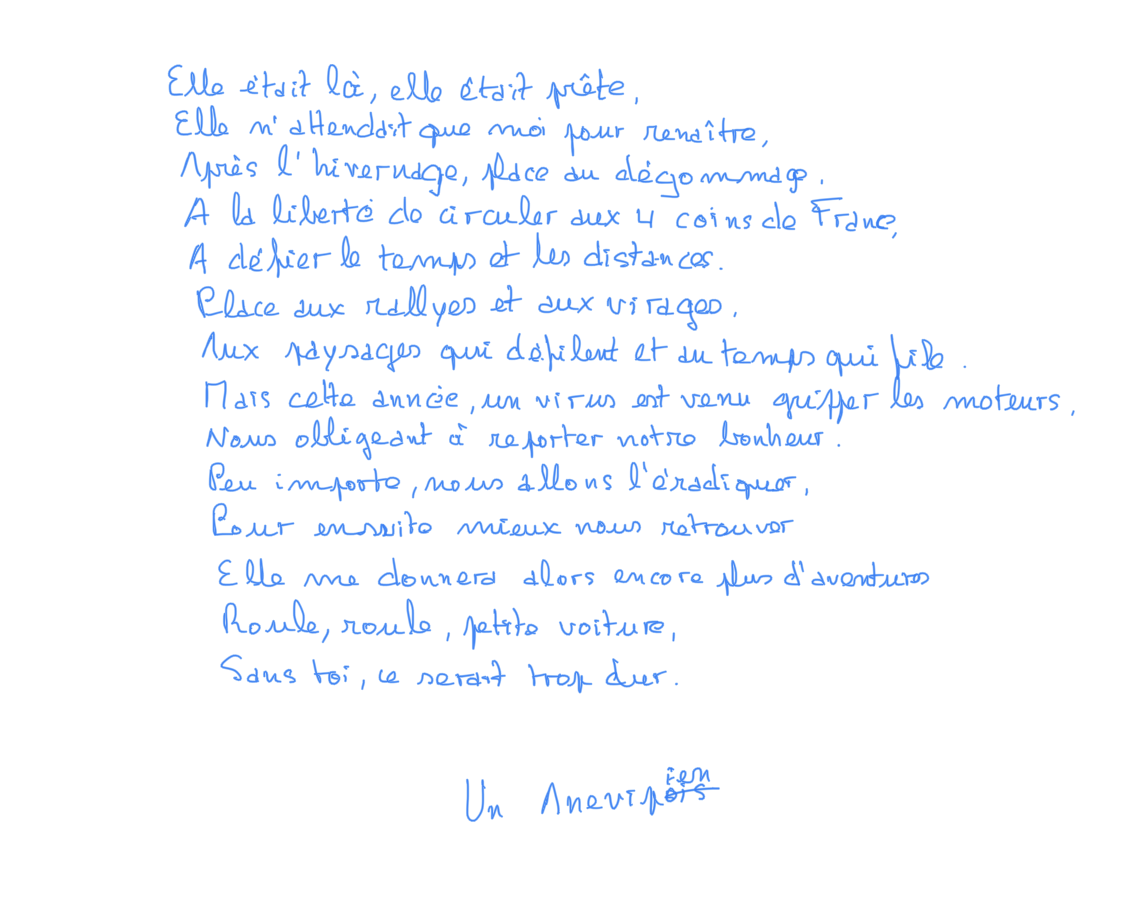 Elle était là, elle était prête,
Elle n'attendait que moi pour renaître,
Après l'hivernage, place au dégommage.
A la liberté de circuler aux 4 coins de France,
A défier le temps et les distances.
Place aux rallyes et aux virages,
Aux paysages qui défilent et au temps qui file.
Mais cette année, un virus est venu gripper les moteurs,
Nous obligeant à reporter notre bonheur.
Peu importe, nous allons l'éradiquer,
Pour ensuite mieux nous retrouver
Elle me donnera alors encore plus d'aventures
Roule, roule, petite voiture,
Sans toi, ce serait trop dur.
Un Anevipien